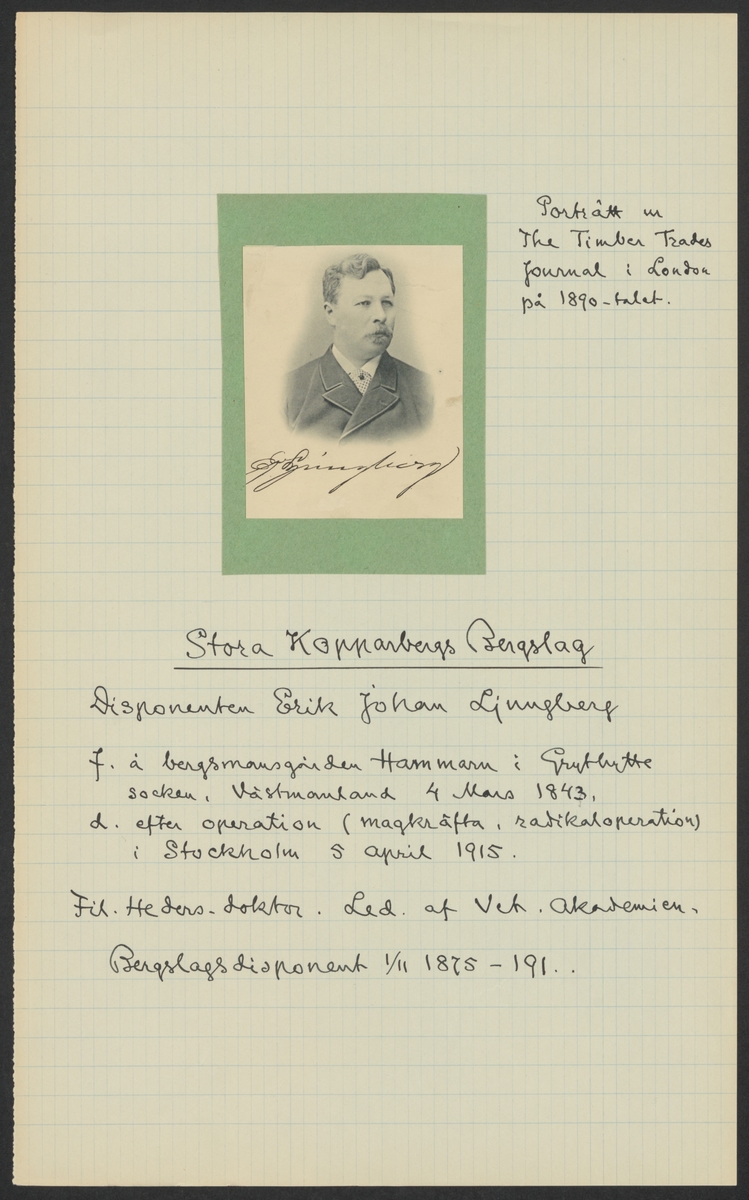 Porträtt ur
The Timber Trades
Journal i London
på 1890-talet.
EJLjungberg
Stora Kopparbergs Bergslag
Disponenten Erik Johan Ljungberg
f. å bergsmansgården Hammarn i Grythytte
socken, Västmanland 4 Mars 1843,
d. efter operation (magkräfta, radikaloperation)
i Stockholm 5 april 1915.
Fil. Heders-doktor. Led. af Vet. Akademien.
Bergslagsdisponent 1/11 1875 - 191..